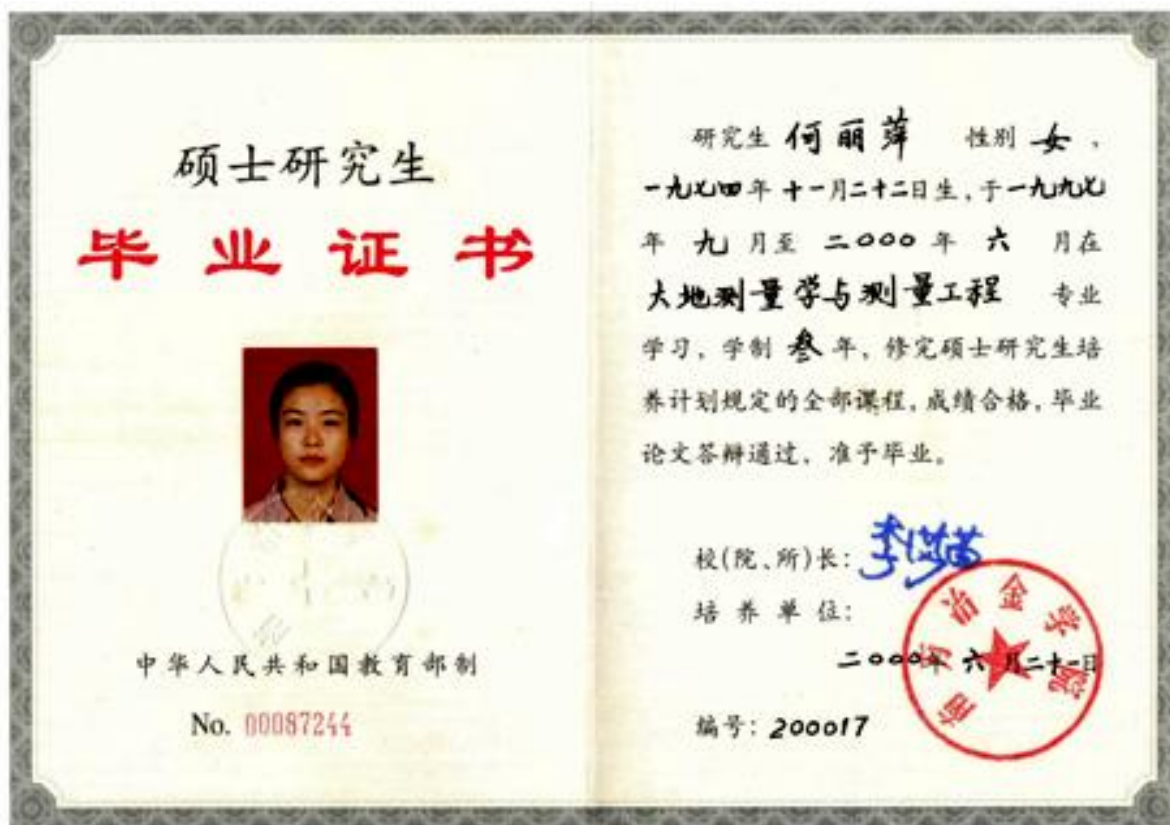 硕士研究生
毕业证书
中华人民共和国教育部制
No. 00087244
研究生 何丽萍 性别 女 ，
一九七四年 十一月二十二日生，于一九九七
年 九 月至 二000 年 六 月在
大地测量学与测量工程 专业
学习，学制 叁 年，修完硕士研究生培
养计划规定的全部课程，成绩合格，毕业
论文答辩通过，准予毕业。
校(院、所)长：
培 养 单 位：
南方冶金学院
二000年 六 月二十一日
编号：200017